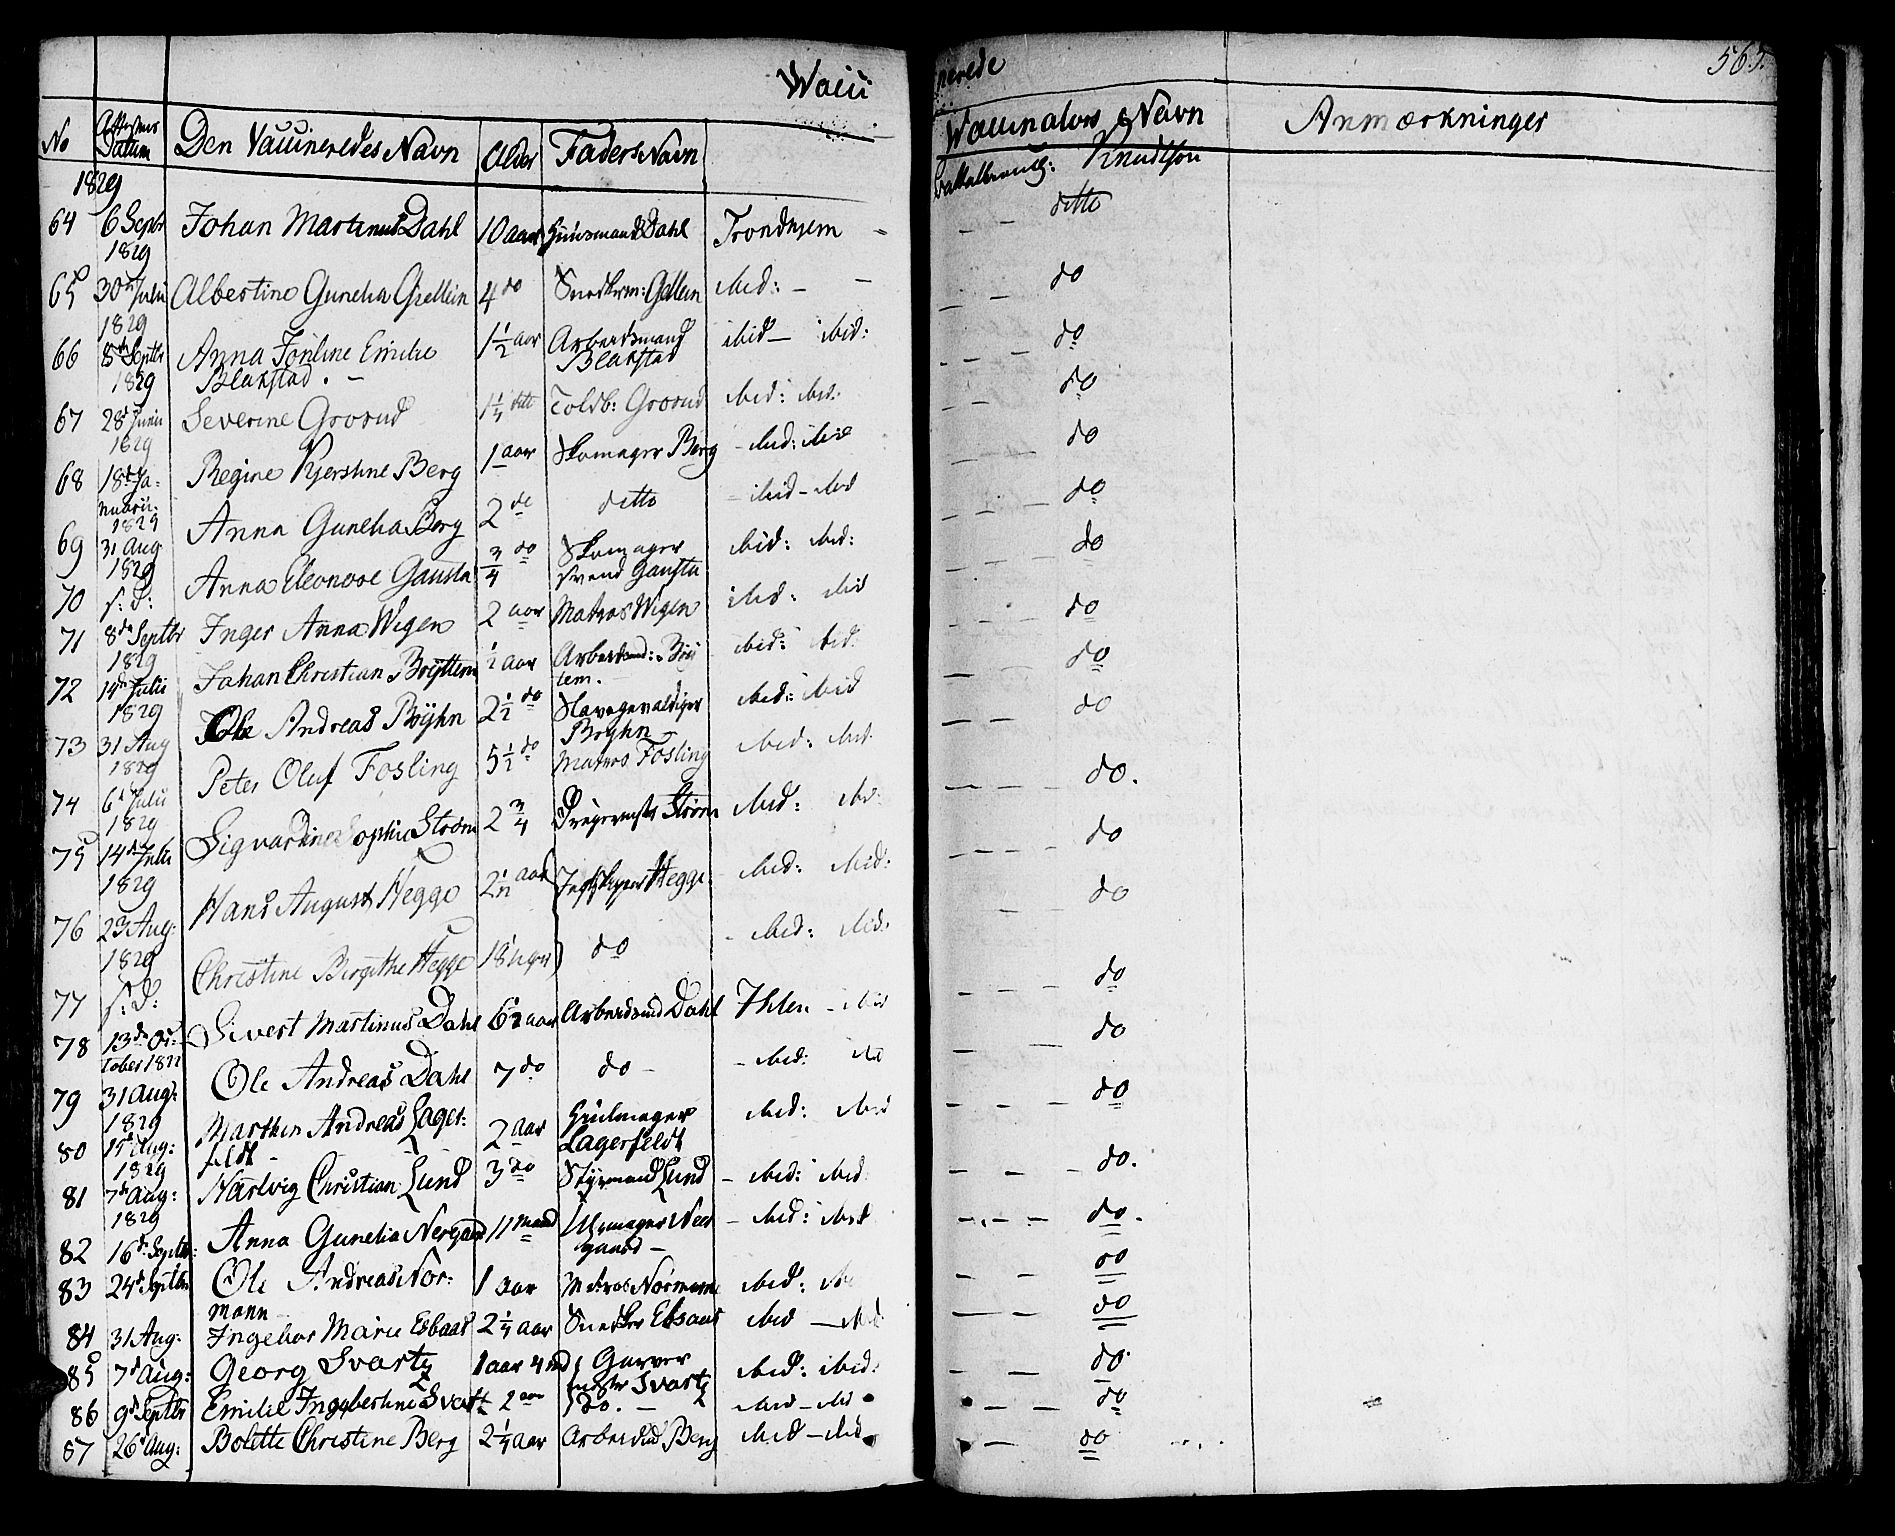 Wacii
nerede
565.
No
Attestens Datum
Den Vaccineredes Navn
Alder
Faders Navn
Waccinators Navn
Anmærkninger
1829
Knudtson
64 6 Septbr 1829 Johan Martinus Dahl 10 aar Huusmand Dahl Trondhjem - - ditto
65 30te Julii 1829 Albertine Gunelia Gjellein 4 do Snedkerm: Gellein ibid: - - do
66 8de Septbr 1829 Anna Jonline Emilie Blakstad. - 1½ aar Arbeidsmand Blakstad ibid - ibid: - - - do
67 28d Junii 1829 Severine Grorud 1¼ ditto Toldb: Grorud ibid: ibid. - - do
68 18de Januarii 1829 Regine Kjerstine Berg 1 aar Skomager Berg - ibid: ibid - - do
Anna Gunelia Berg 2 do ditto - ibid - ibid - - - do
69 31 Aug 1829 Anna Eleonore Gausta ¾ do Skomager svend Gausta ibid: ibid: - - - do
70 s: d: Inger Anna Wigen 2 aar Matros Wigen ibid: ibid - - - do
71 8de Septbr 1829 Johan Christian Brÿttem ½ aar Arbeidsmd: Brÿttem. ibid: ibid. - do
72 14de Julii 1829 Ole Andreas Brÿhn 2½ do Slavegevaldiger Bryhn ibid: ibid - - do
73 31 Aug 1829 Peter Oluf Fosling 5½ do Matros Fosling ibid: ibid. - - - do.
74 6d Julii 1829 Sigvardine Sophie Strøm 2¾ Strøm ibid: ibid: - - - - do
75 14de Julii 1829 Hans August Hegge 2½ aar Hegge - ibid: ibid: - - do
76 23 Aug: 1829 Christine Birgithe Hegge 18 uger do - ibid: ibid. - - - do
77 s: d: Sivert Martinus Dahl 6½ aar Arbeidsmd Dahl Ihlen - ibid - - do
78 13de October 1822 Ole Andreas Dahl 7 do do - - ibid: ibid - - - do
79 31 Aug: 1829 Marthin Andreas Lagerfeldt - 2 aar Hiulmager Lagerfeldt ibid: ibid - - - do.
80 15d Aug: 1829 Hartvig Christian Lund 3 do Styrmand Lund - ibid: ibid - - - do.
81 7d Aug: 1829 Anna Gunelia Nergaard 11 maand Uhrmager Neergaard - - ibid: ibid - - do
82 16d Septbr: Ole Andreas Normann 1 aar Matros Normann ibid: ibid — — do
83 24d Septbr
84 31 Aug: Ingebor Marie Esbaas 2¼ aar Snedker Ebsaas ibid — ibid - - do
85 7d Aug: Georg Svartz 1 aar 4 md Garver mester Svartz ibid: ibid: - - - do
86 9d Septbr Emilie Ingebertine Svartz 2 aar do. - ibid - ibid
87 26d Aug: Bolette Christine Berg 2¼ aar Arbeidsd Berg ibid - ibid - do